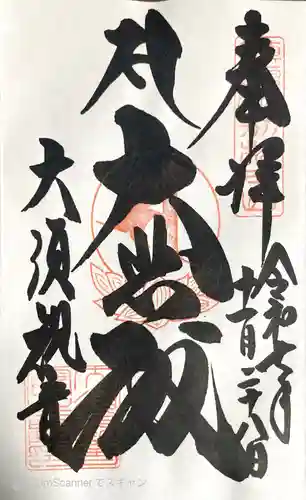 奉拝
令和七年
十一月二十八日
大悲殿
大須観音
mScanner でスキャン